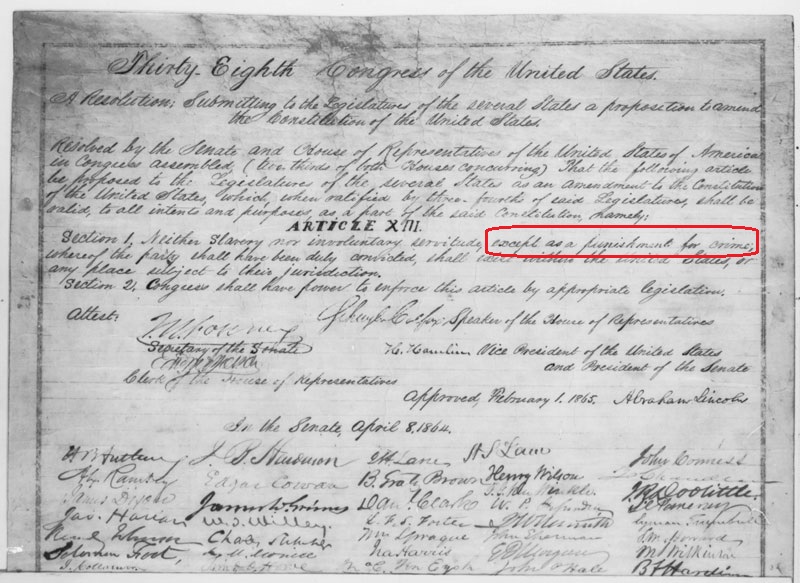 Thirty-Eighth Congress of the United States.
A Resolution; Submitting to the Legislatures of the several States a proposition to amend
the Constitution of the United States.
Resolved by the Senate and House of Representatives of the United States of America
in Congress assembled, (two thirds of both Houses concurring) That the following article
be proposed to the Legislatures of the several States as an amendment to the Constitution
of the United States, which, when ratified by three fourths of said Legislatures, shall be
valid, to all intents and purposes, as a part of the said Constitution, namely:
ARTICLE XIII.
Section 1. Neither Slavery nor involuntary servitude, except as a punishment for crime,
whereof the party shall have been duly convicted, shall exist within the United States, or
any place subject to their jurisdiction.
Section 2. Congress shall have power to enforce this article by appropriate legislation.
Attest:
J. W. Forney
Secretary of the Senate
Schuyler Colfax, Speaker of the House of Representatives
H. Hamlin Vice President of the United States
and President of the Senate
Clerk of the House of Representatives
Approved, February 1. 1865. Abraham Lincoln
In the Senate, April 8, 1864.
J. B. Henderson J H Lane John Conness
Edgar Cowan B. Gratz Brown Henry Wilson
James W. Grimes Danl. Clark J. R. Doolittle
W. T. Willey L. F. S. Foster
Wm Sprague John Sherman
Solomon Foot Ira Harris M S Wilkinson
John P Hale